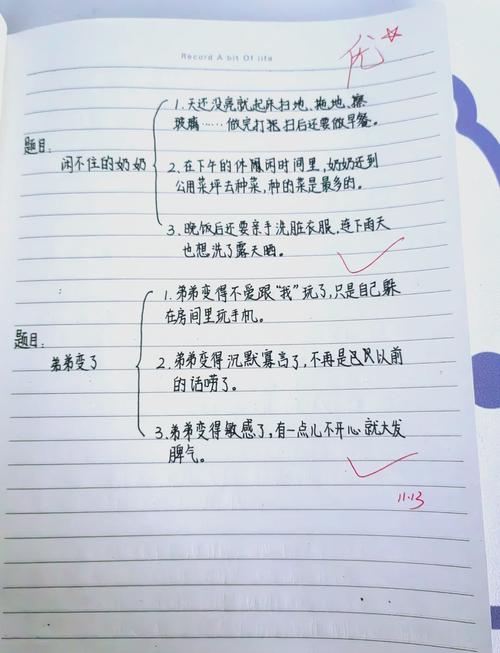 Record A bit Of life
优
1. 天还没亮就起床扫地、拖地、擦
玻璃……做完打扫后还要做早餐。
题目:
闲不住的奶奶
2. 在下午的休闲时间里,奶奶还到
公用菜坪去种菜,种的菜是最多的。
3. 晚饭后还要亲手洗脏衣服,连下雨天
也想洗了露天晒。
1. 弟弟变得不爱跟“我”玩了,只是自己躲
在房间里玩手机。
题目:
弟弟变了
2. 弟弟变得沉默寡言了,不再是以前
的话唠了。
3. 弟弟变得敏感了,有一点儿不开心就大发
脾气。
11.13